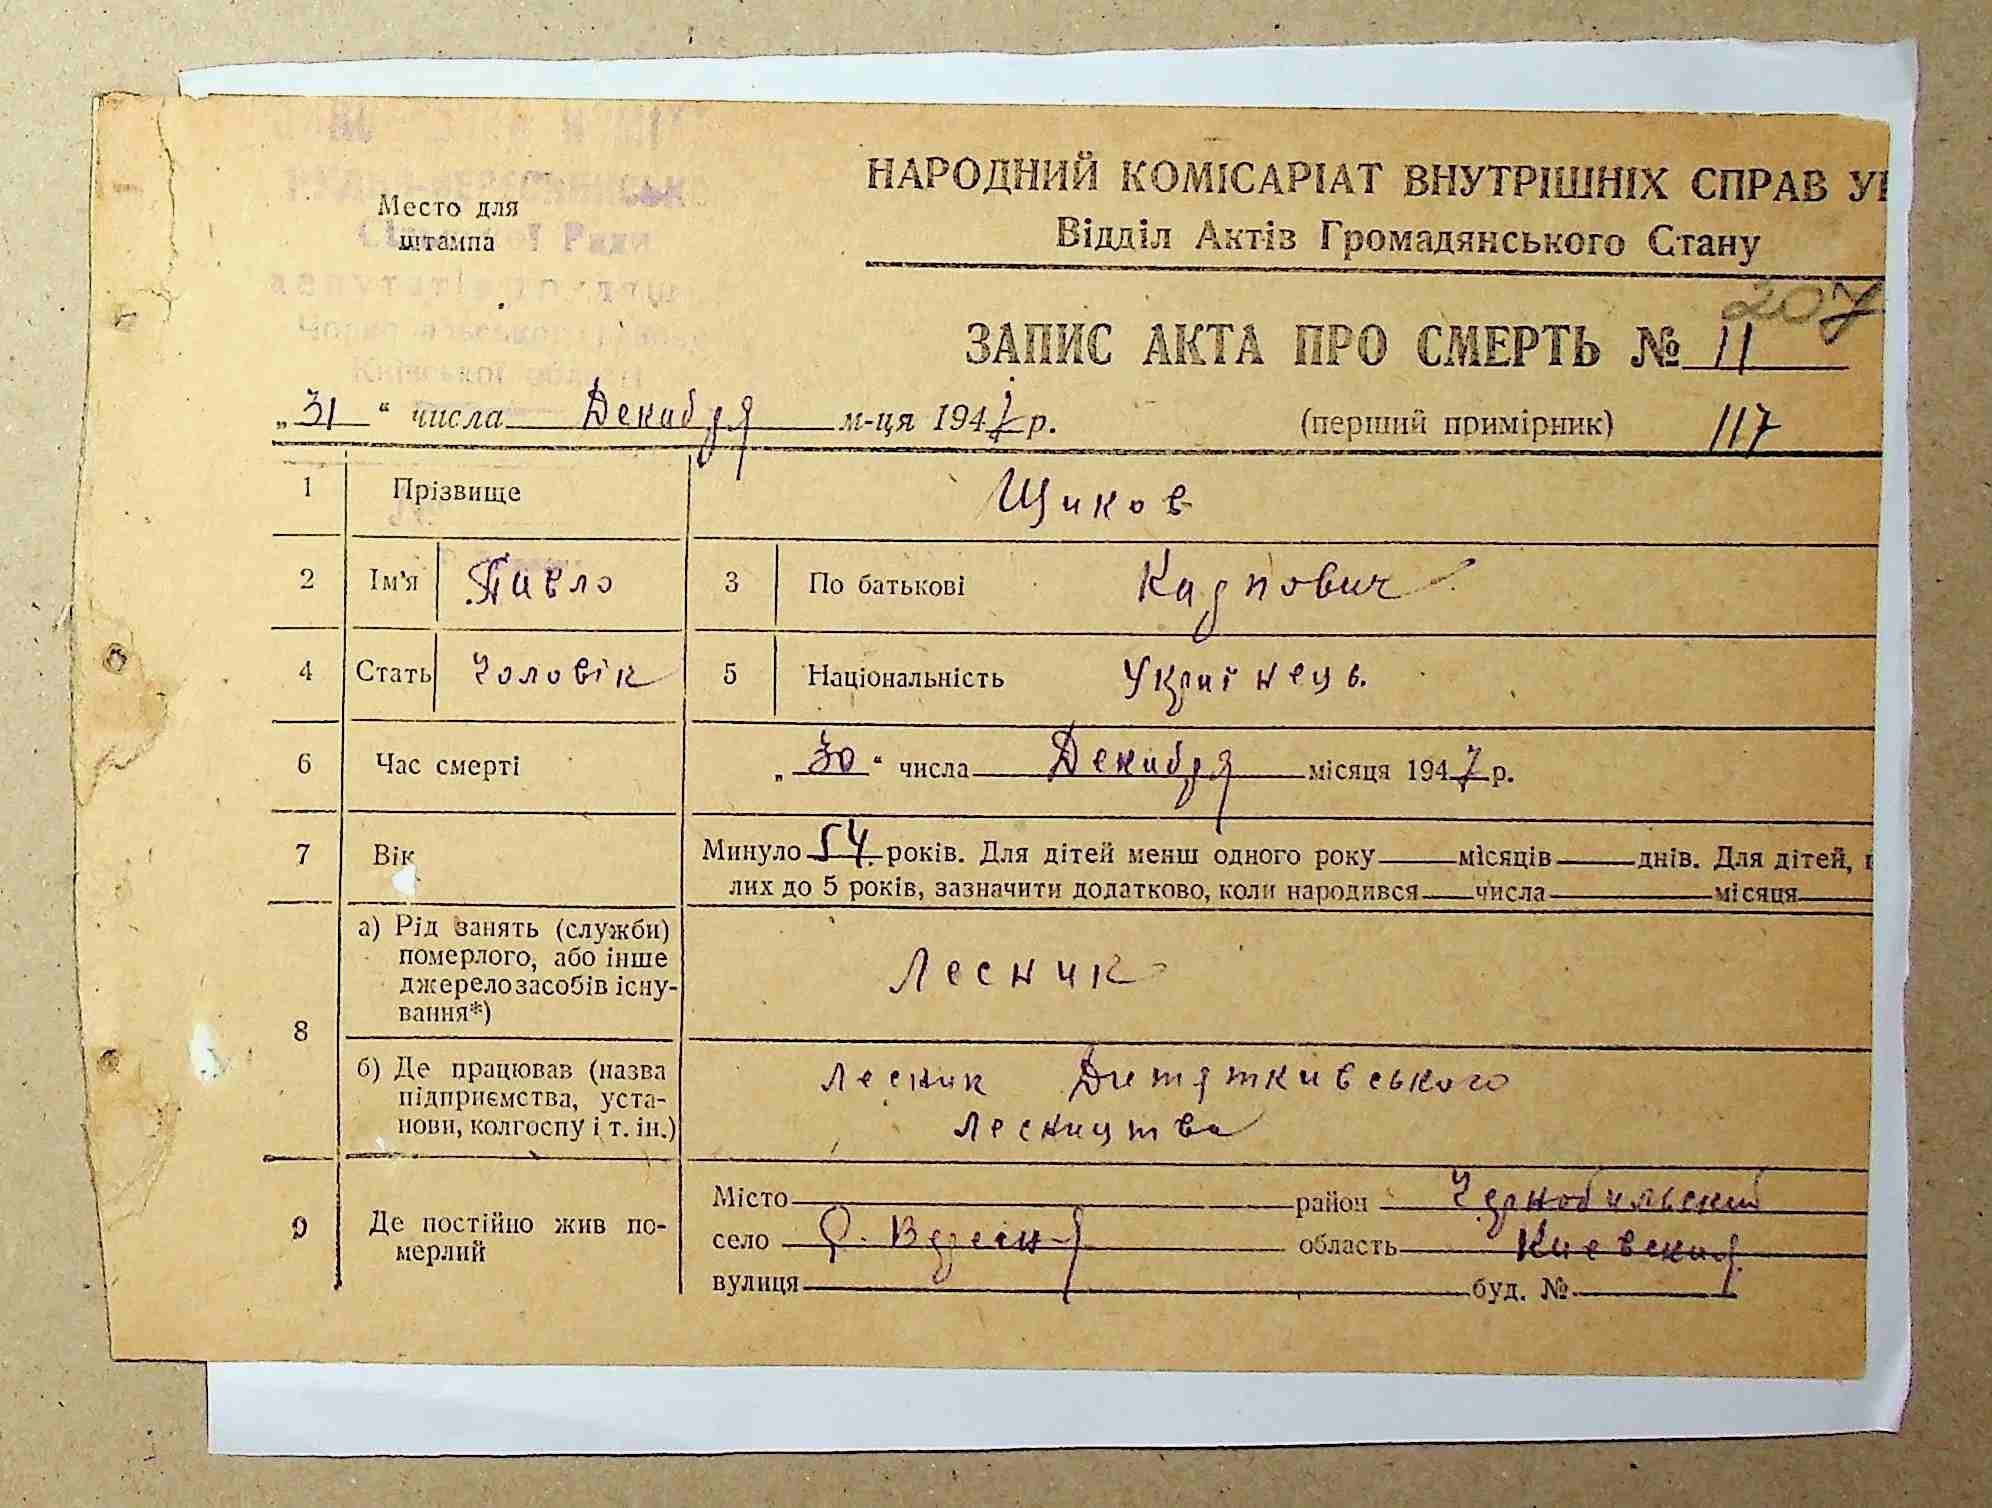 Место для
штампа
Сільської Ради
Київської області
НАРОДНИЙ КОМІСАРІАТ ВНУТРІШНІХ СПРАВ
Відділ Актів Громадянського Стану
207
ЗАПИС АКТА ПРО СМЕРТЬ № 11
„ 31 “ числа Декабря м-ця 1947 р. (перший примірник) 117
1 Прізвище Щиков
2 Ім'я Павло 3 По батькові Карпович
4 Стать Чоловік 5 Національність Українець.
6 Час смерті „ 30 “ числа Декабря місяця 1947 р.
7 Вік Минуло 54 років. Для дітей менш одного року місяців днів. Для дітей,
лих до 5 років, зазначити додатково, коли народився числа місяця
8 а) Рід занять (служби)
померлого, або інше
джерело засобів існу-
вання*) Лесник
б) Де працював (назва
підприємства, уста-
нови, колгоспу і т. ін.) лесник Дитятківського
лесництва
9 Де постійно жив по-
мерлий
Місто район Чернобильский
село Р. Вересня область Киевская
вулиця буд. №